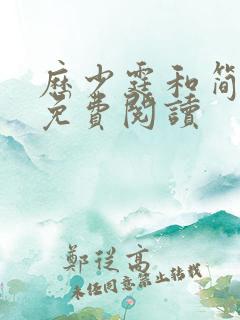 歷少霆和簡
免費閱讀
鄭從高
未經同意禁止轉載